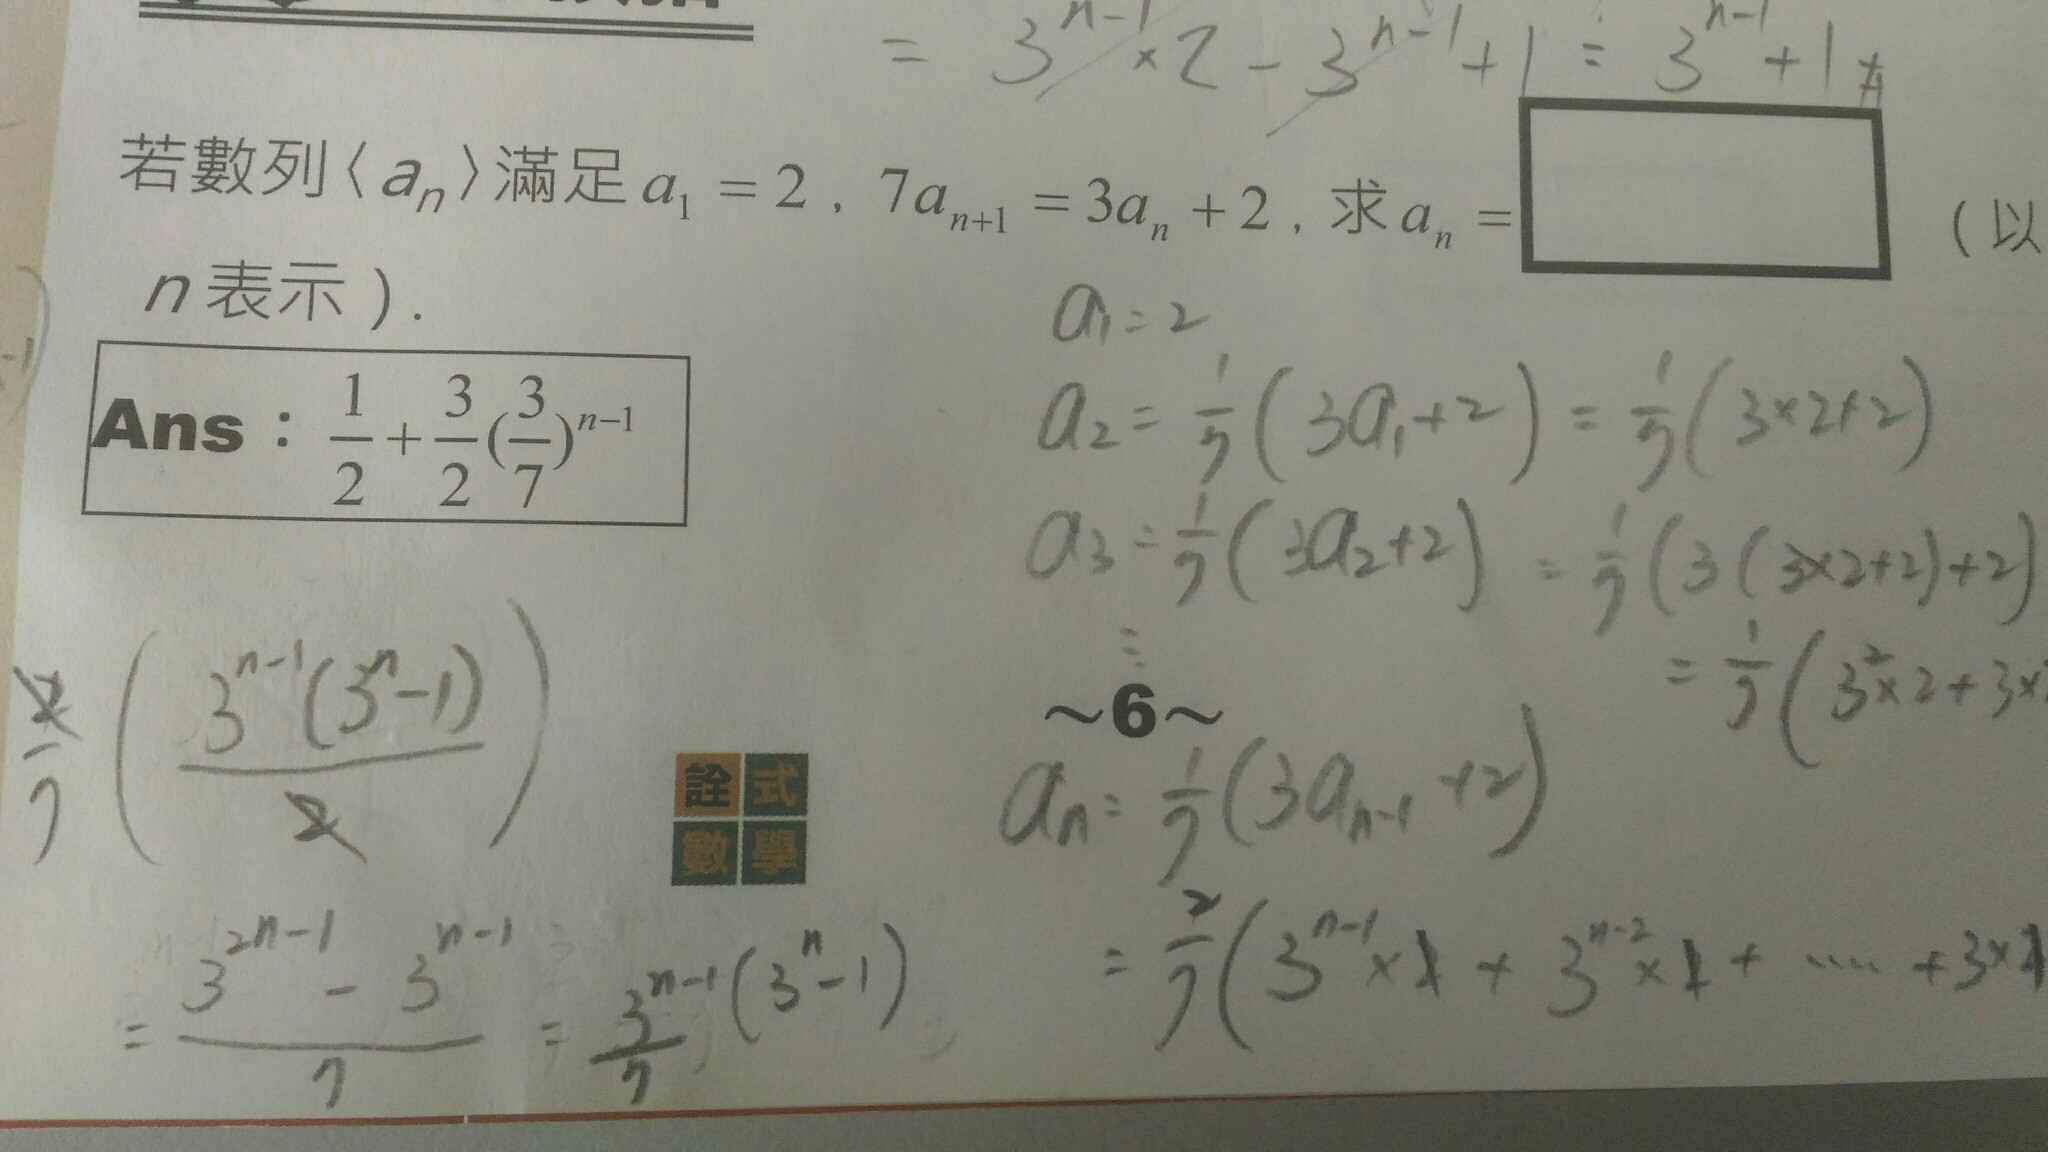 = 3^{n-1} × 2 - 3^{n-1} + 1 = 3^{n-1} + 1 #
若數列〈a_n〉滿足 a_1 = 2 , 7a_{n+1} = 3a_n + 2 , 求 a_n = （以
n 表示）.
Ans : 1/2 + 3/2 (3/7)^{n-1}
a_1 = 2
a_2 = 1/7 (3a_1 + 2) = 1/7 (3×2+2)
a_3 = 1/7 (3a_2+2) = 1/7 (3(3×2+2)+2)
= 1/7 (3^2×2+3×
⋮
~6~
a_n = 1/7 (3a_{n-1} + 2)
= 2/7 (3^{n-1}×1 + 3^{n-2}×1 + ..... + 3×1
2/7 (3^{n-1}(3^n-1)/2)
= (3^{2n-1} - 3^{n-1})/7 = 3^{n-1}/7 (3^n-1)
詮式
數學